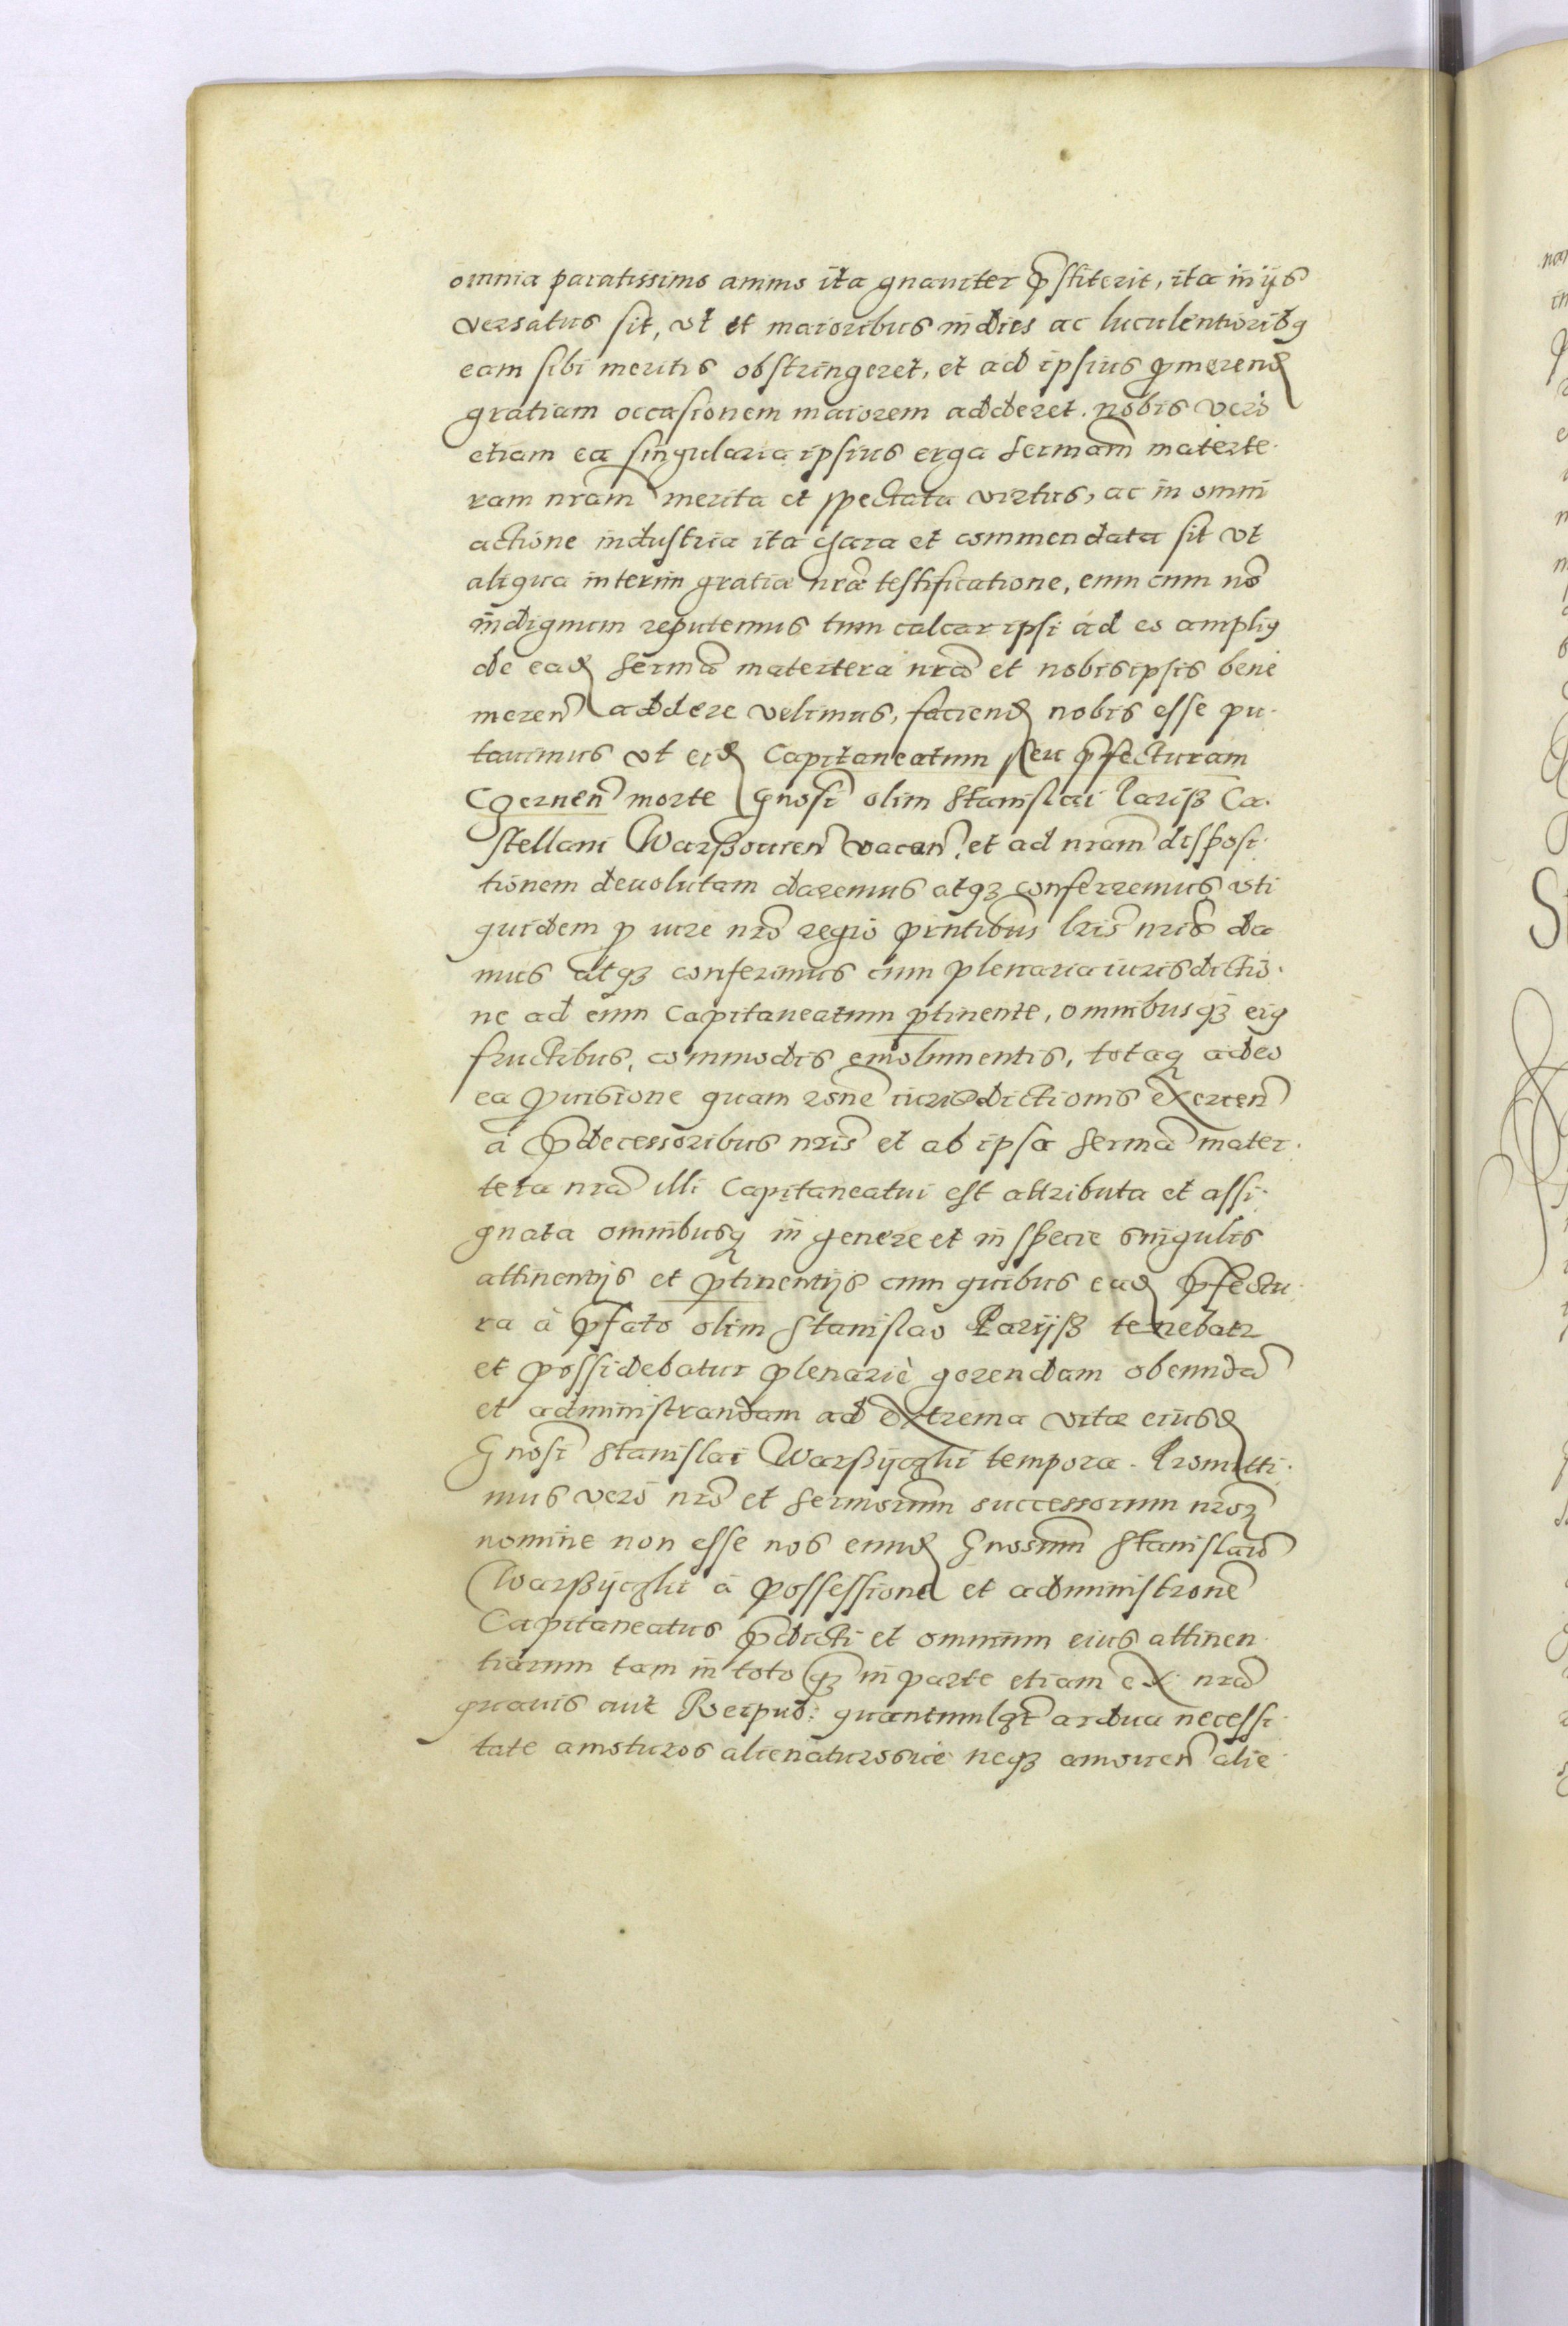 omnia paratissimo animo ita gnauiter p̃stiterit, ita in ijs
versatus sit, vt et maioribus indies ac luculentioribꝯ
eam sibi meritis obstringeret, et ad ipsius ꝓmerenđ
gratiam occasionem maiorem adderet. nobis verò
etiam ea singularia ipsius erga Sermam̃ materte-
ram nram̃ merita et spectata virtus, ac in omni
actione industria ita chara et commendata sit vt
aliqua interim gratiæ nræ̃ testificatione, eum cum nõ
indignum reputemus tum calcar ipsi ad eo ampliꝯ
de eađ Sermã matertera nrã et nobis ipsis bene
meren̄ addere velimus, faciend̄ nobis esse pu-
tauimus vt eiđ Capitaneatum seu p̃fecturam
Czernen̄ morte Gnosi̅ olim Stanislai Pariß Ca-
stellani Warßouien̄ vacan̄, et ad nram̃ disposi-
tionem deuolutam daremus atqꝫ conferremus vti
quidem ꝑ iure nrõ regio pn̄tibus lris̃ nris̃ da
mus atqꝫ conferimus cum plenaria iurisdictio-
ne ad eum Capitaneatum ꝑtinente, omnibusqꝫ eiꝯ
fructibus, commodis emolumentis, totaqꝫ adeo
ea ꝓuisione quam rõne iurisdictionis exercen̄
à p̃decessoribus nris̃ et ab ipsa Sermã mater-
tera nrã illi Capitaneatui est attributa et assi-
gnata omnibusqꝫ in genere et in specie singulis
attinentijs et ꝑtinentijs cum quibus eađ p̃fectu-
ra à p̃fato olim Stanislao Parijß tenebatr
et possidebatur plenariè gerendam obeundã
et administrandam ad extrema vitæ eiusđ
Gnosi̅ Stanislai Warßijczhi tempora. Promitti-
mus verò nrõ et Sermorum̃ successorum nrorꝫ̃
nomine non esse nos eunđ Gnosum̃ Stanislaũ
Warßijczhi à possessione et administrone̅
Capitaneatus p̃dicti et omnium eius attinen
tiarum tam in toto qꝫ̃ in parte etiam ex nrã
quauis aut Reipub: quantumlꝫt̃ ardua necessi-
tate amoturos alienaturosuè neqꝫ amouen̄ alie-